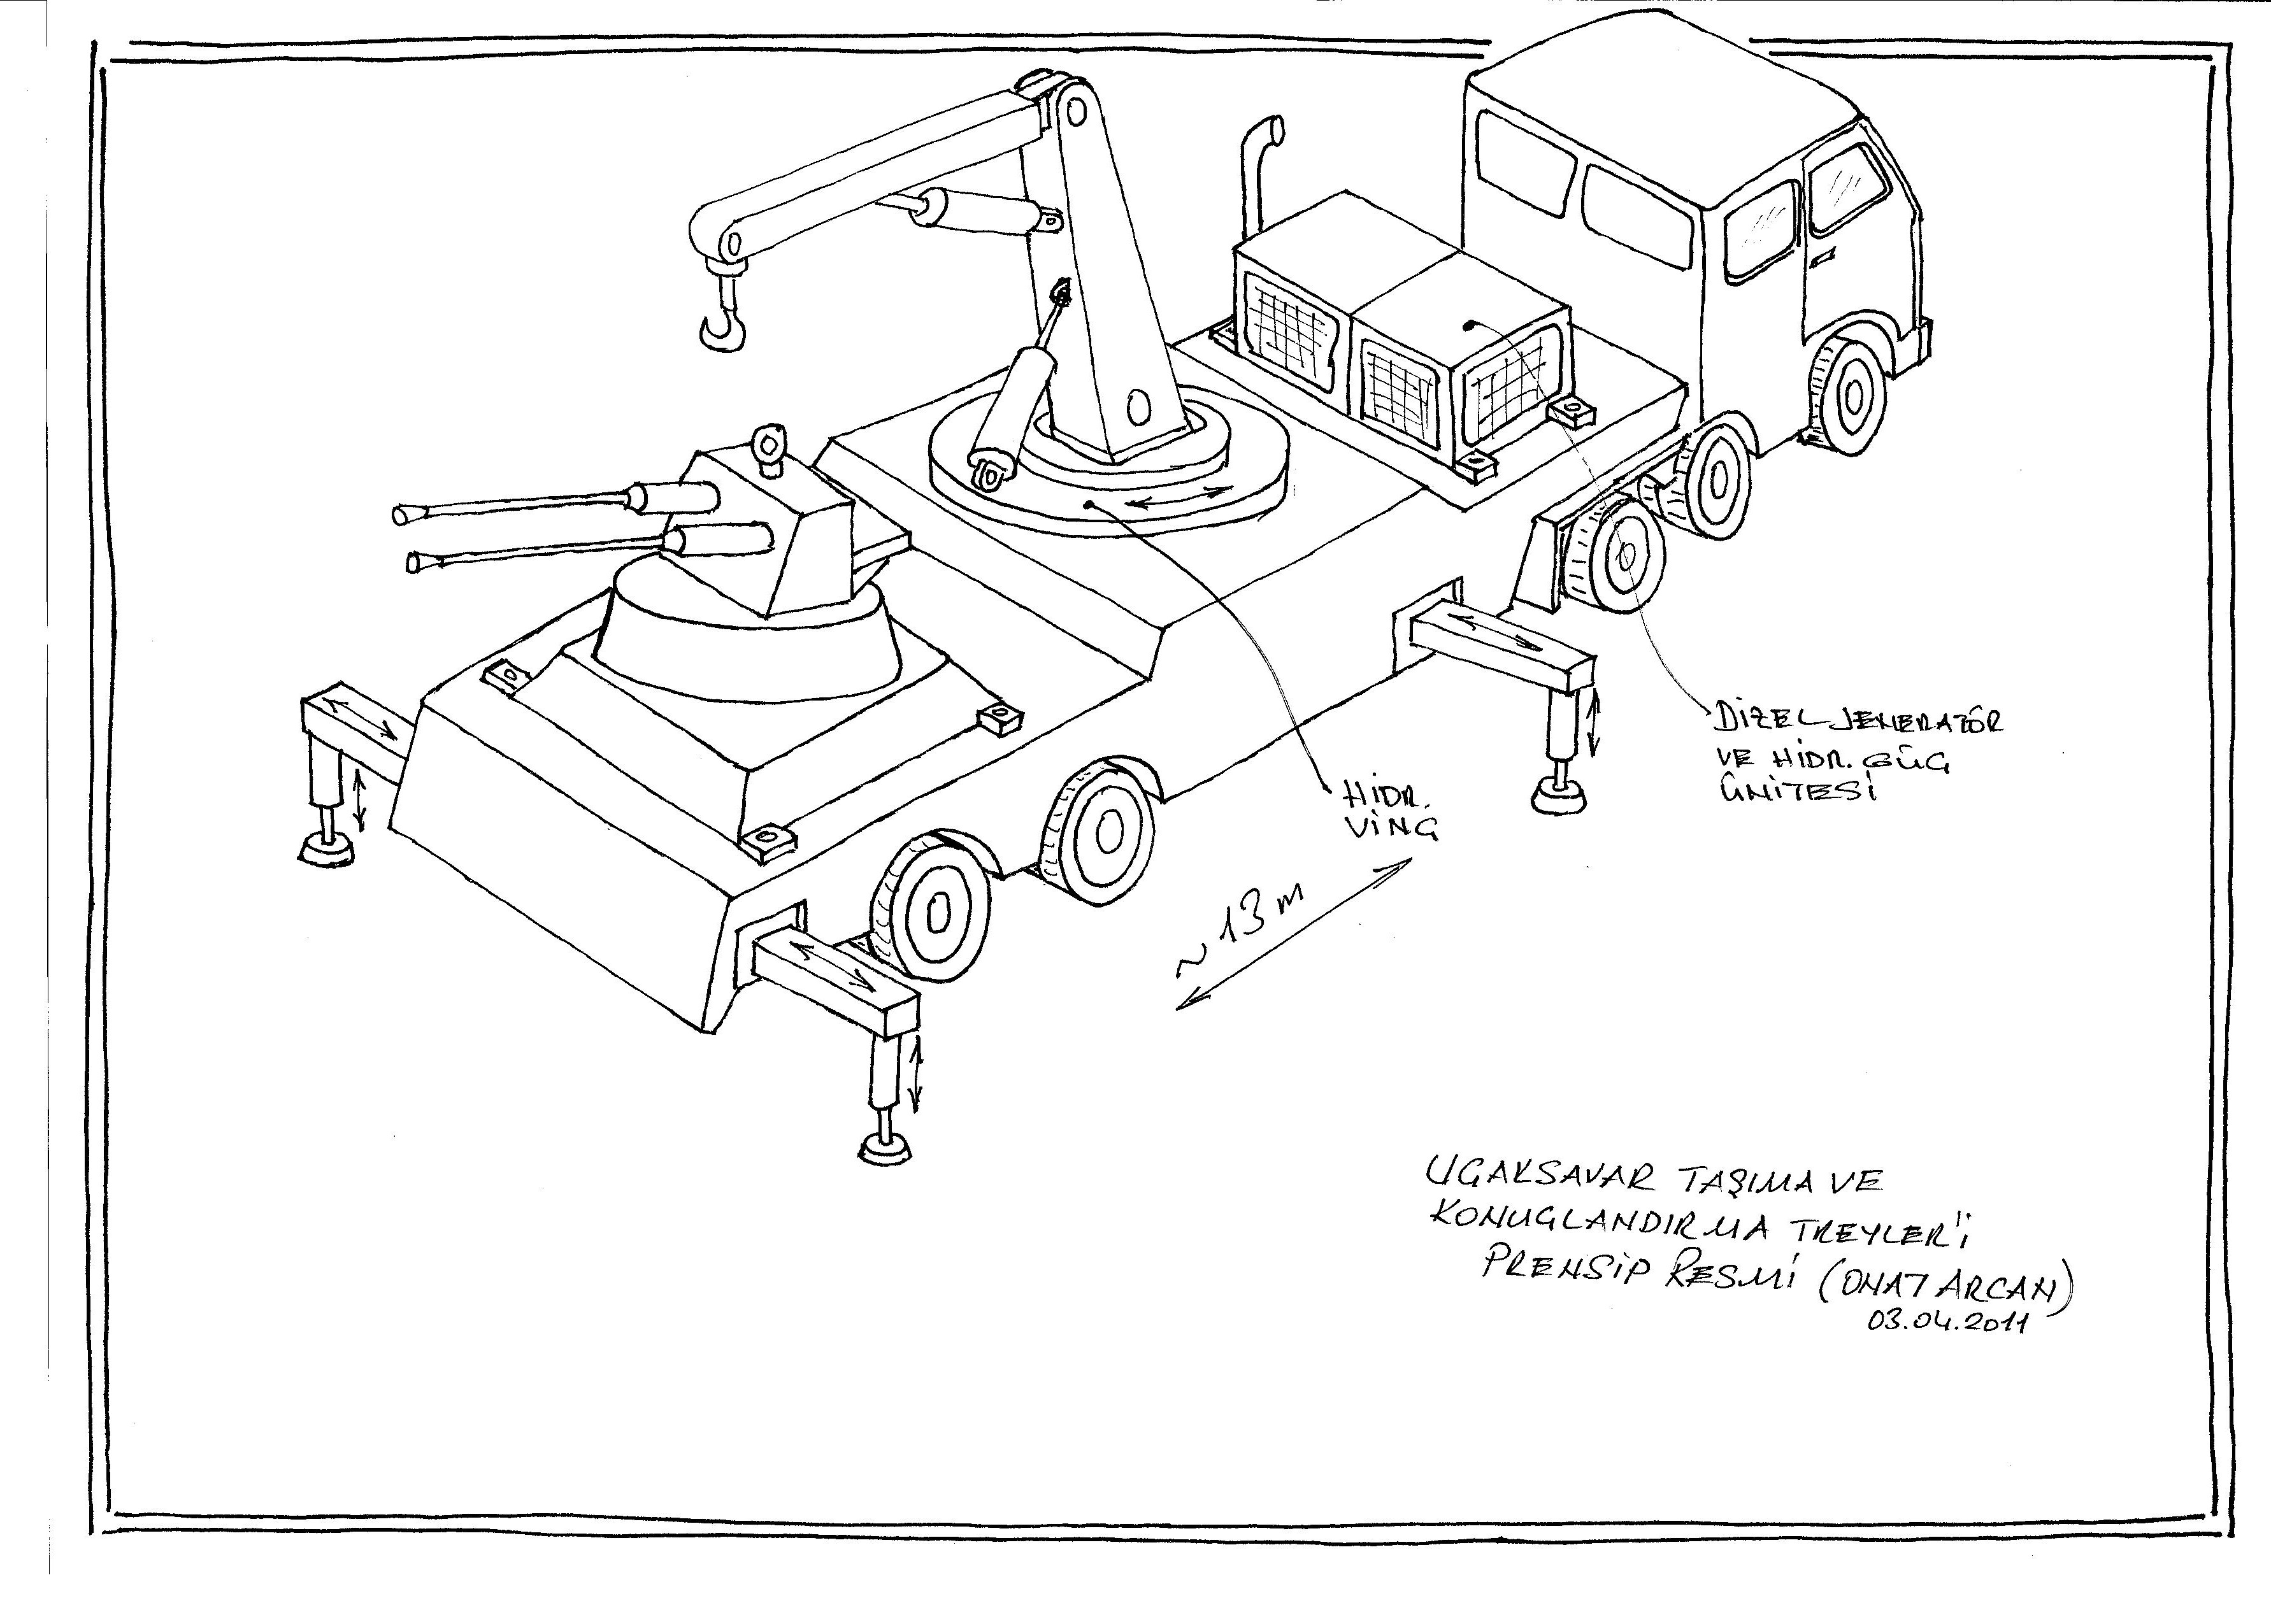 DİZEL JENERATÖR
VE HİDR. GÜÇ
ÜNİTESİ
HİDR.
VİNÇ
~13 m
UÇAKSAVAR TAŞIMA VE
KONUÇLANDIRMA TREYLER'İ
PRENSİP RESMİ (ONAT ARCAN)
03.04.2011